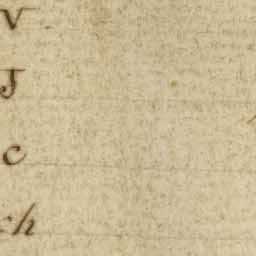 V
J
c
ch